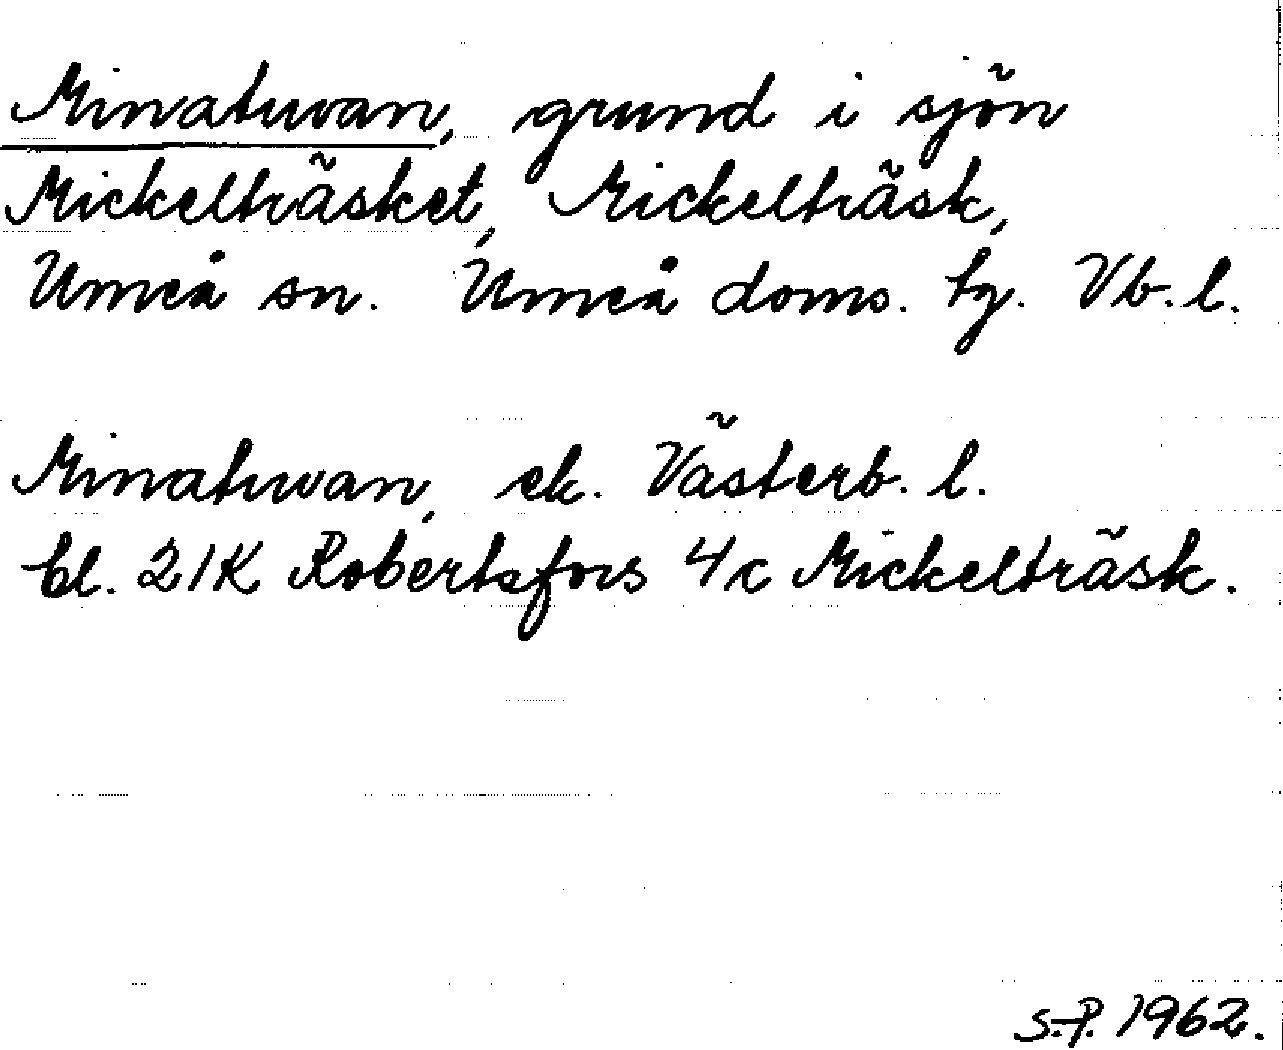 Minatuvan, grund i sjön
Mickelträsket, Mickelträsk,
Umeå sn. Umeå doms. tg. Vb. l.
Minatuvan, ek. Västerb. l.
bl. 21K Robertsfors 4c Mickelträsk.
S.P. 1962.